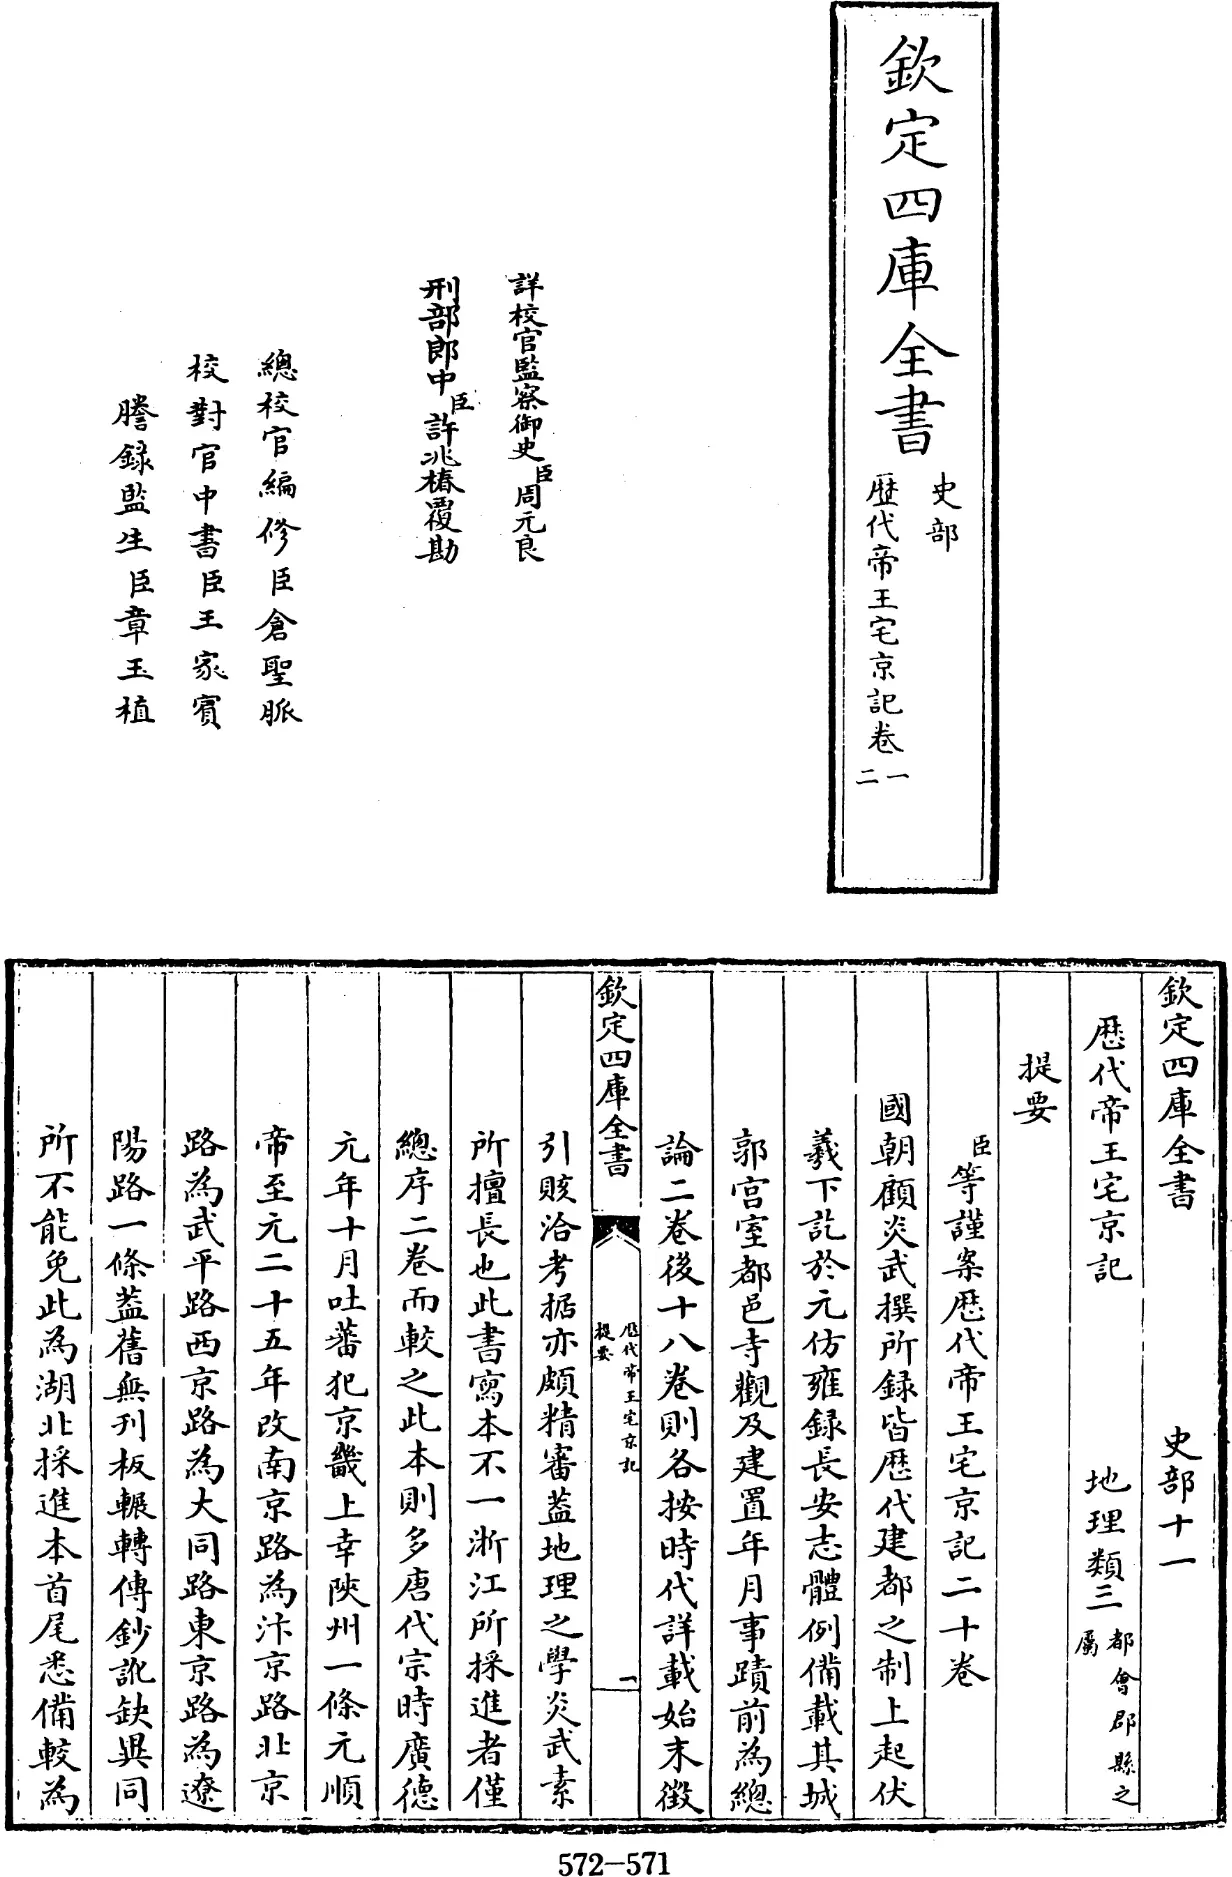 欽定四庫全書
史部
歷代帝王宅京記卷一
二
詳校官監察御史臣周元良
刑部郎中臣許兆椿覆勘
總校官編修臣倉聖脈
校對官中書臣王家賓
謄錄監生臣章玉植
欽定四庫全書 史部十一
歷代帝王宅京記 地理類三都會郡縣之屬
提要
臣等謹案歷代帝王宅京記二十卷
國朝顧炎武撰所録皆歷代建都之制上起伏
羲下訖於元仿雍録長安志體例備載其城
郭宫室都邑寺觀及建置年月事蹟前為總
論二卷後十八卷則各按時代詳載始末徵
欽定四庫全書 歷代帝王宅京記 提要 一
引賅洽考据亦頗精審蓋地理之學炎武素
所擅長也此書寫本不一浙江所採進者僅
總序二卷而較之此本則多唐代宗時廣德
元年十月吐蕃犯京畿上幸陜州一條元順
帝至元二十五年改南京路為汴京路北京
路為武平路西京路為大同路東京路為遼
陽路一條葢舊無刋板輾轉傳鈔訛缺異同
所不能免此為湖北採進本首尾悉備較為
572-571